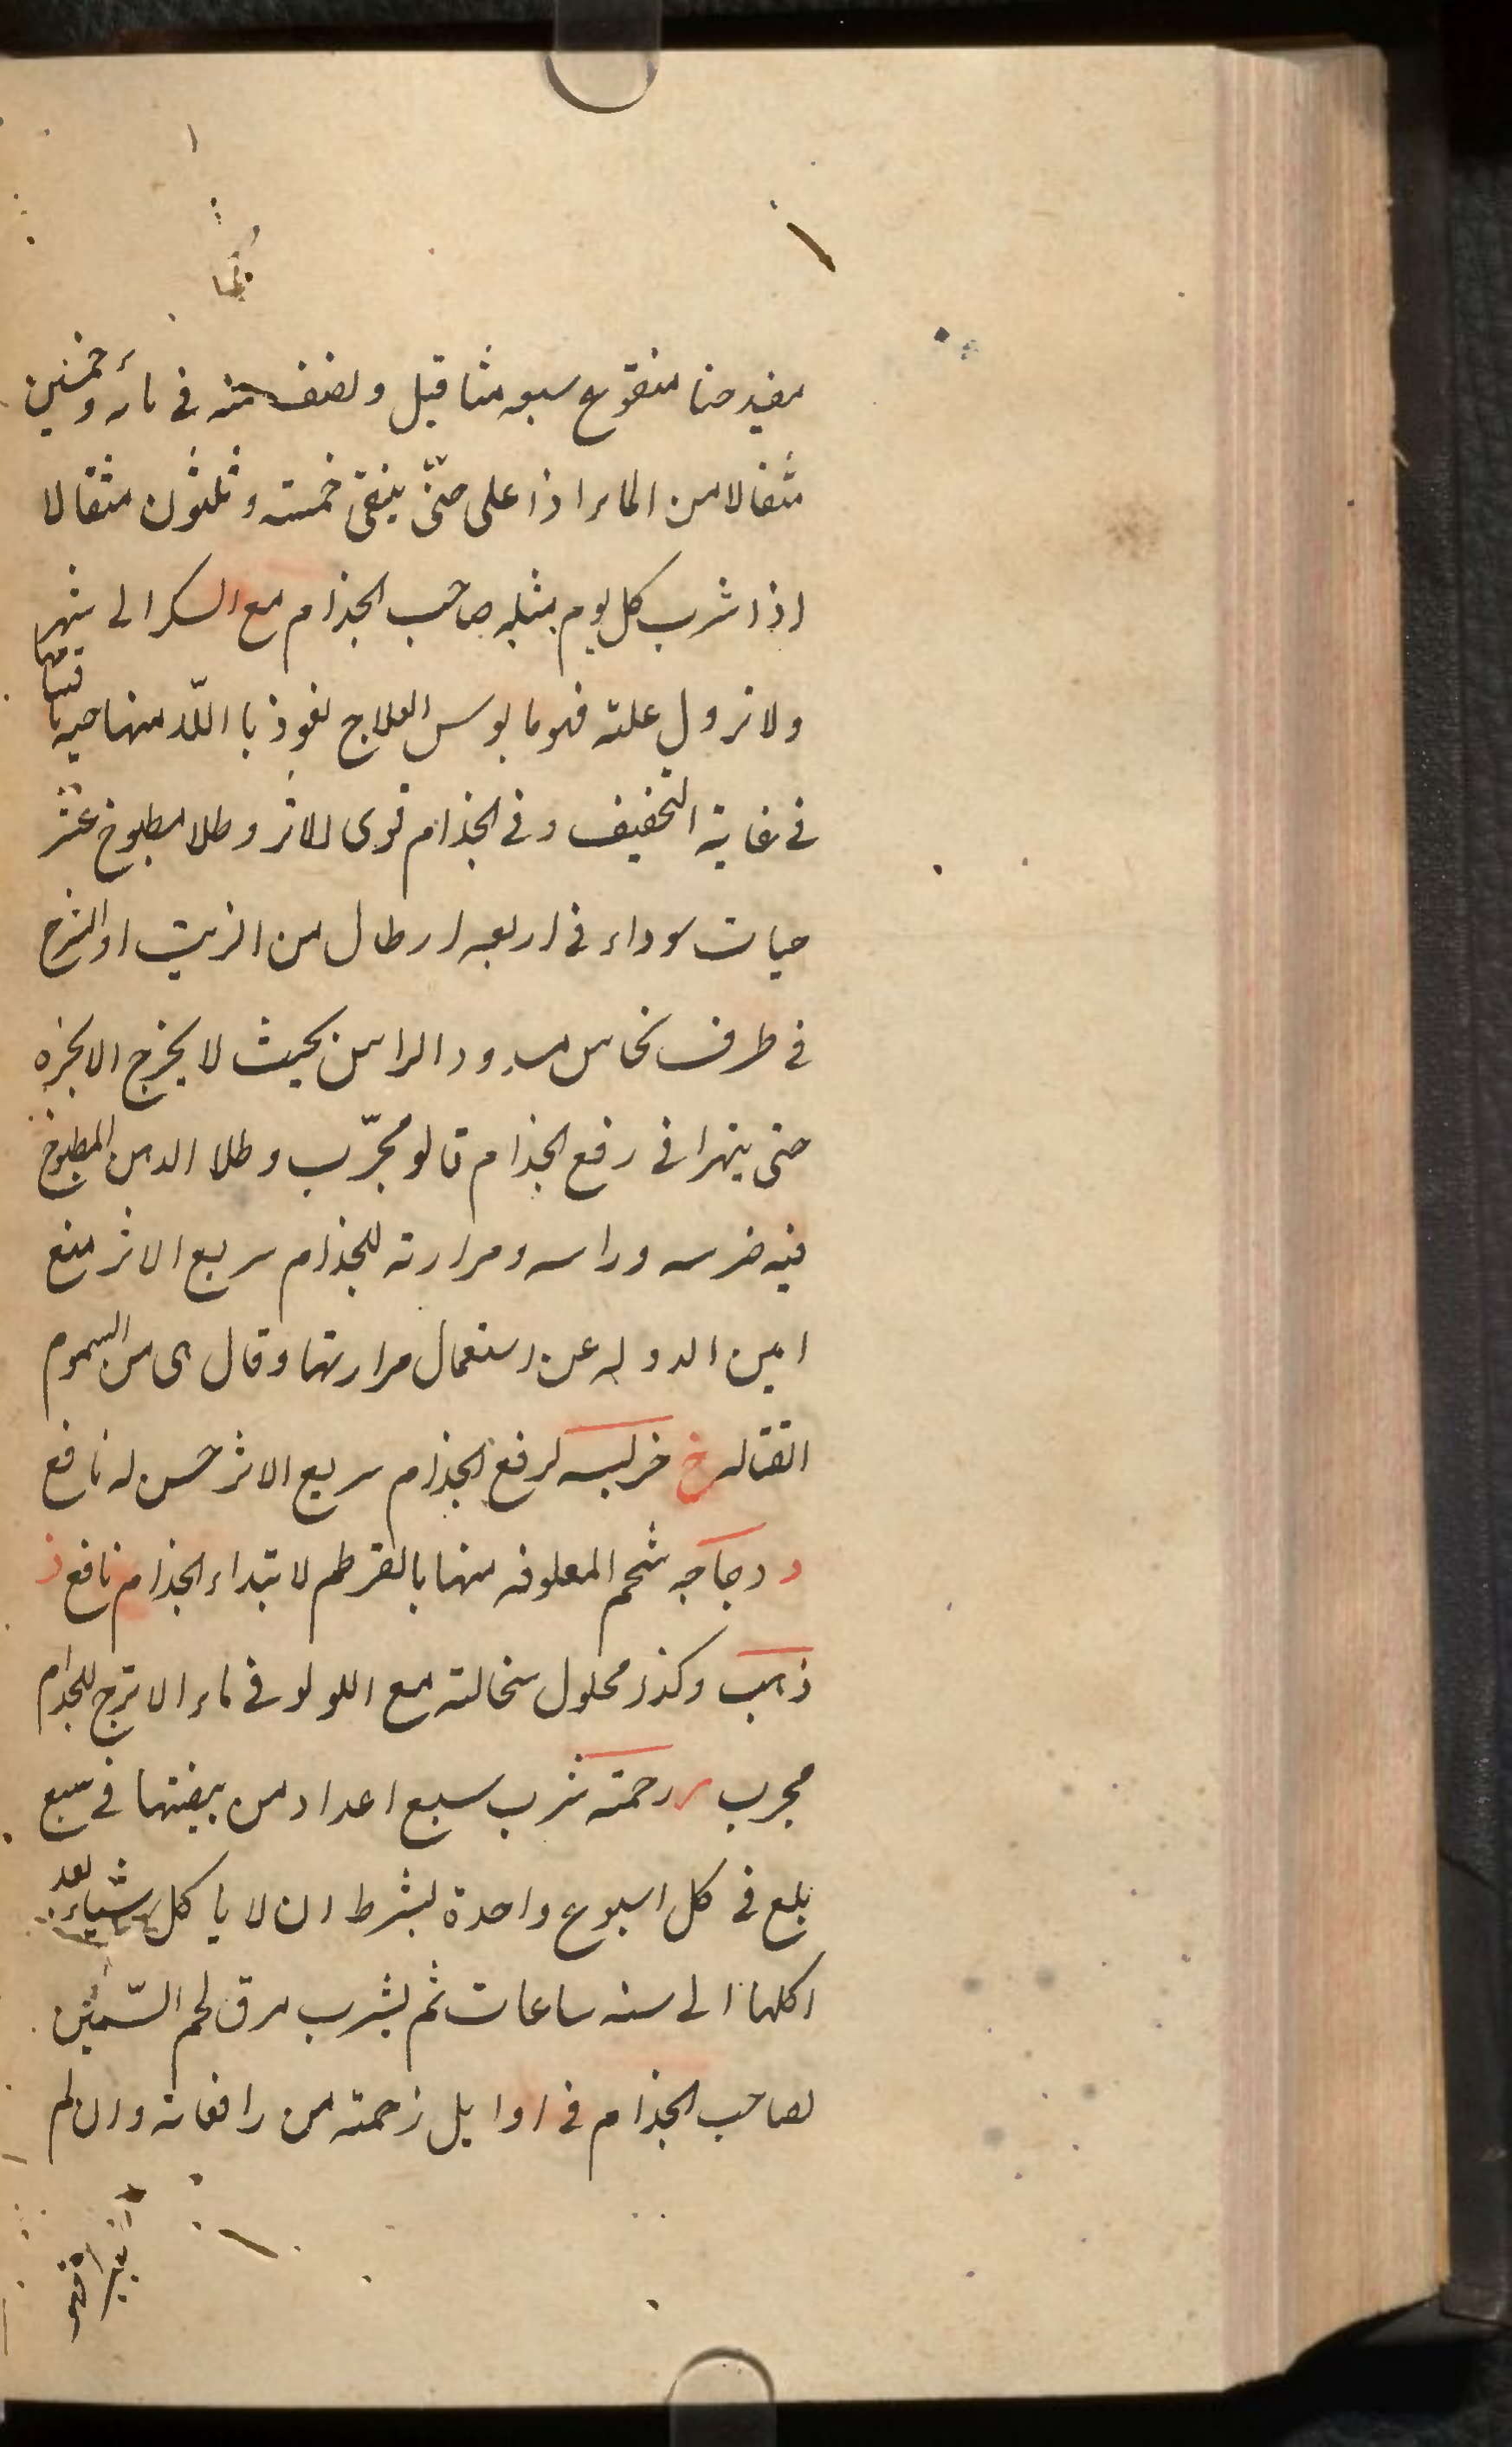 مفيد حنا منقوع سبعه مثاقيل ونصف منه فى مائه وخمسين
مثقالا من الماء اذا على حتى ينقى خمسته وثلثون مثقالا
اذا شرب كل يوم مثله صاحب الجذام مع السكر الى شهر
ولا تزول علته فهو مايوس العلاج نعوذ با الله منها حيه
فى غاية التخفيف وفى الجذام قوى الاثر وطلا مطبوخ عشر
حيات سوداء فى اربعه ارطال من الزيت او الشرج
فى ظرف نحاس مسدود الراس بحيث لا يخرج الابخره
حتى ينهرا فى رفع الجذام قالو مجرّب وطلا الدهن المطبوخ
فيه ضرسه وراسه ومرارته للجذام سريع الاثر منع
امين الدوله عن استعمال مرارتها وقال هى من السموم
القتاله خ لرفع الجذام سريع الاثر حسن له نافع
د دجاجه شحم المعلوفه منها بالقرطم لابتداء الجذام نافع ذ
ذهب وكذا محلول سحالته مع اللولو فى ماء الاترج للجذام
مجرب ر رحمته شرب سبع اعداد من بيضتها فى سبع
بلع فى كل اسبوع واحدة بشرط ان لا ياكل شياء بعد
اكلها الى سته ساعات ثم يشرب مرق لحم السّمين
لصاحب الجذام فى اوايل زحمته من رافعاته وان لم